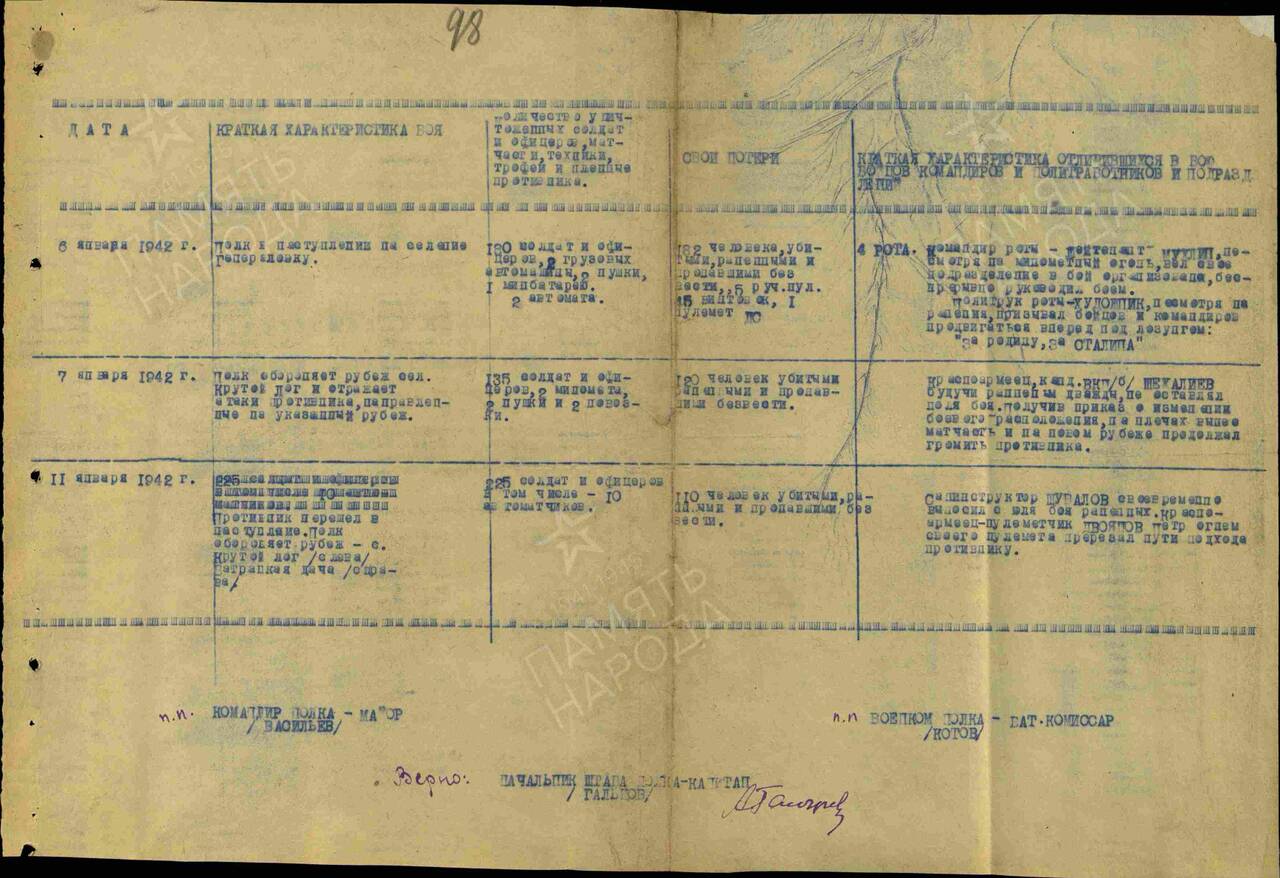 98
ДАТА
КРАТКАЯ ХАРАКТЕРИСТИКА БОЯ
Количество унич-
тоженных солдат
и офицеров, мат-
части, техники,
трофей и пленные
противника.
СВОИ ПОТЕРИ
КРАТКАЯ ХАРАКТЕРИСТИКА ОТЛИЧИВШИХСЯ В БОЮ
БОЙЦОВ КОМАНДИРОВ И ПОЛИТРАБОТНИКОВ И ПОДРАЗД
ЛЕНИ"
6 января 1942 г.
Полк в наступлении на селение
Генераловку.
180 молдат и офи-
церов, 2 грузовых
автомашины, 2 пушки,
1 минбатарею.
2 автомата.
182 человека, уби-
тыми, раненными и
пропавшими без
вести,, 5 руч.пул.
45 винтовок, 1
пулемет ДС
4 РОТА. Командир роты - лейтенант МУХИН, не-
смотря на минометный огонь, вел свое
подразделение в бой организована, бес-
прерывно руководил боем.
Политрук роты-ХУДОЖНИК, несмотря на
ранения, призывал бойцов и командиров
продвигаться вперед под лозунгем:
"За родину, за СТАЛИНА"
7 января 1942 г.
Полк обороняет рубеж сел.
Крутой лог и отражает
атаки противника, направлен-
ные на указанный рубеж.
135 солдат и офи-
церов, 2 миномета,
2 пушки и 2 повоз-
ки.
120 человек убитыми
раненными и пропав-
шими безвести.
Красноармеец, канд. ВКП/б/ ШЕКАЛИЕВ
будучи раненным дважды, не оставлял
поля боя. получив приказ о изменении
боевого расположения, на плечах вынес
матчасть и на новом рубеже продолжал
громить противника.
11 января 1942 г.
Противник перешел в
наступление. Полк
обороняет рубеж - с.
Крутой лог /слева/
Батрацкая дача /спра-
ва/
225 солдат и офицеров
в том числе - 10
автоматчиков.
110 человек убитыми, ра-
ными и пропавшими без
вести.
Санинструктор ШУВАЛОВ своевременно
выносил с поля боя раненных. Красно-
армеец-пулеметчик ДВОЯДОВ петр огнем
своего пулемета пререзал пути подхода
противнику.
п.п. КОМАНДИР ПОЛКА - МАЙОР
/ВАСИЛЬЕВ/
п.п ВОЕНКОМ ПОЛКА - БАТ.КОМИССАР
/КОТОВ/
Верно: НАЧАЛЬНИК ШТАБА ПОЛКА-КАПИТАН
/ГАЛЬЦОВ/
ПАМЯТЬ
НАРОДА
1941-1945
ПАМЯТЬ
НАРОДА